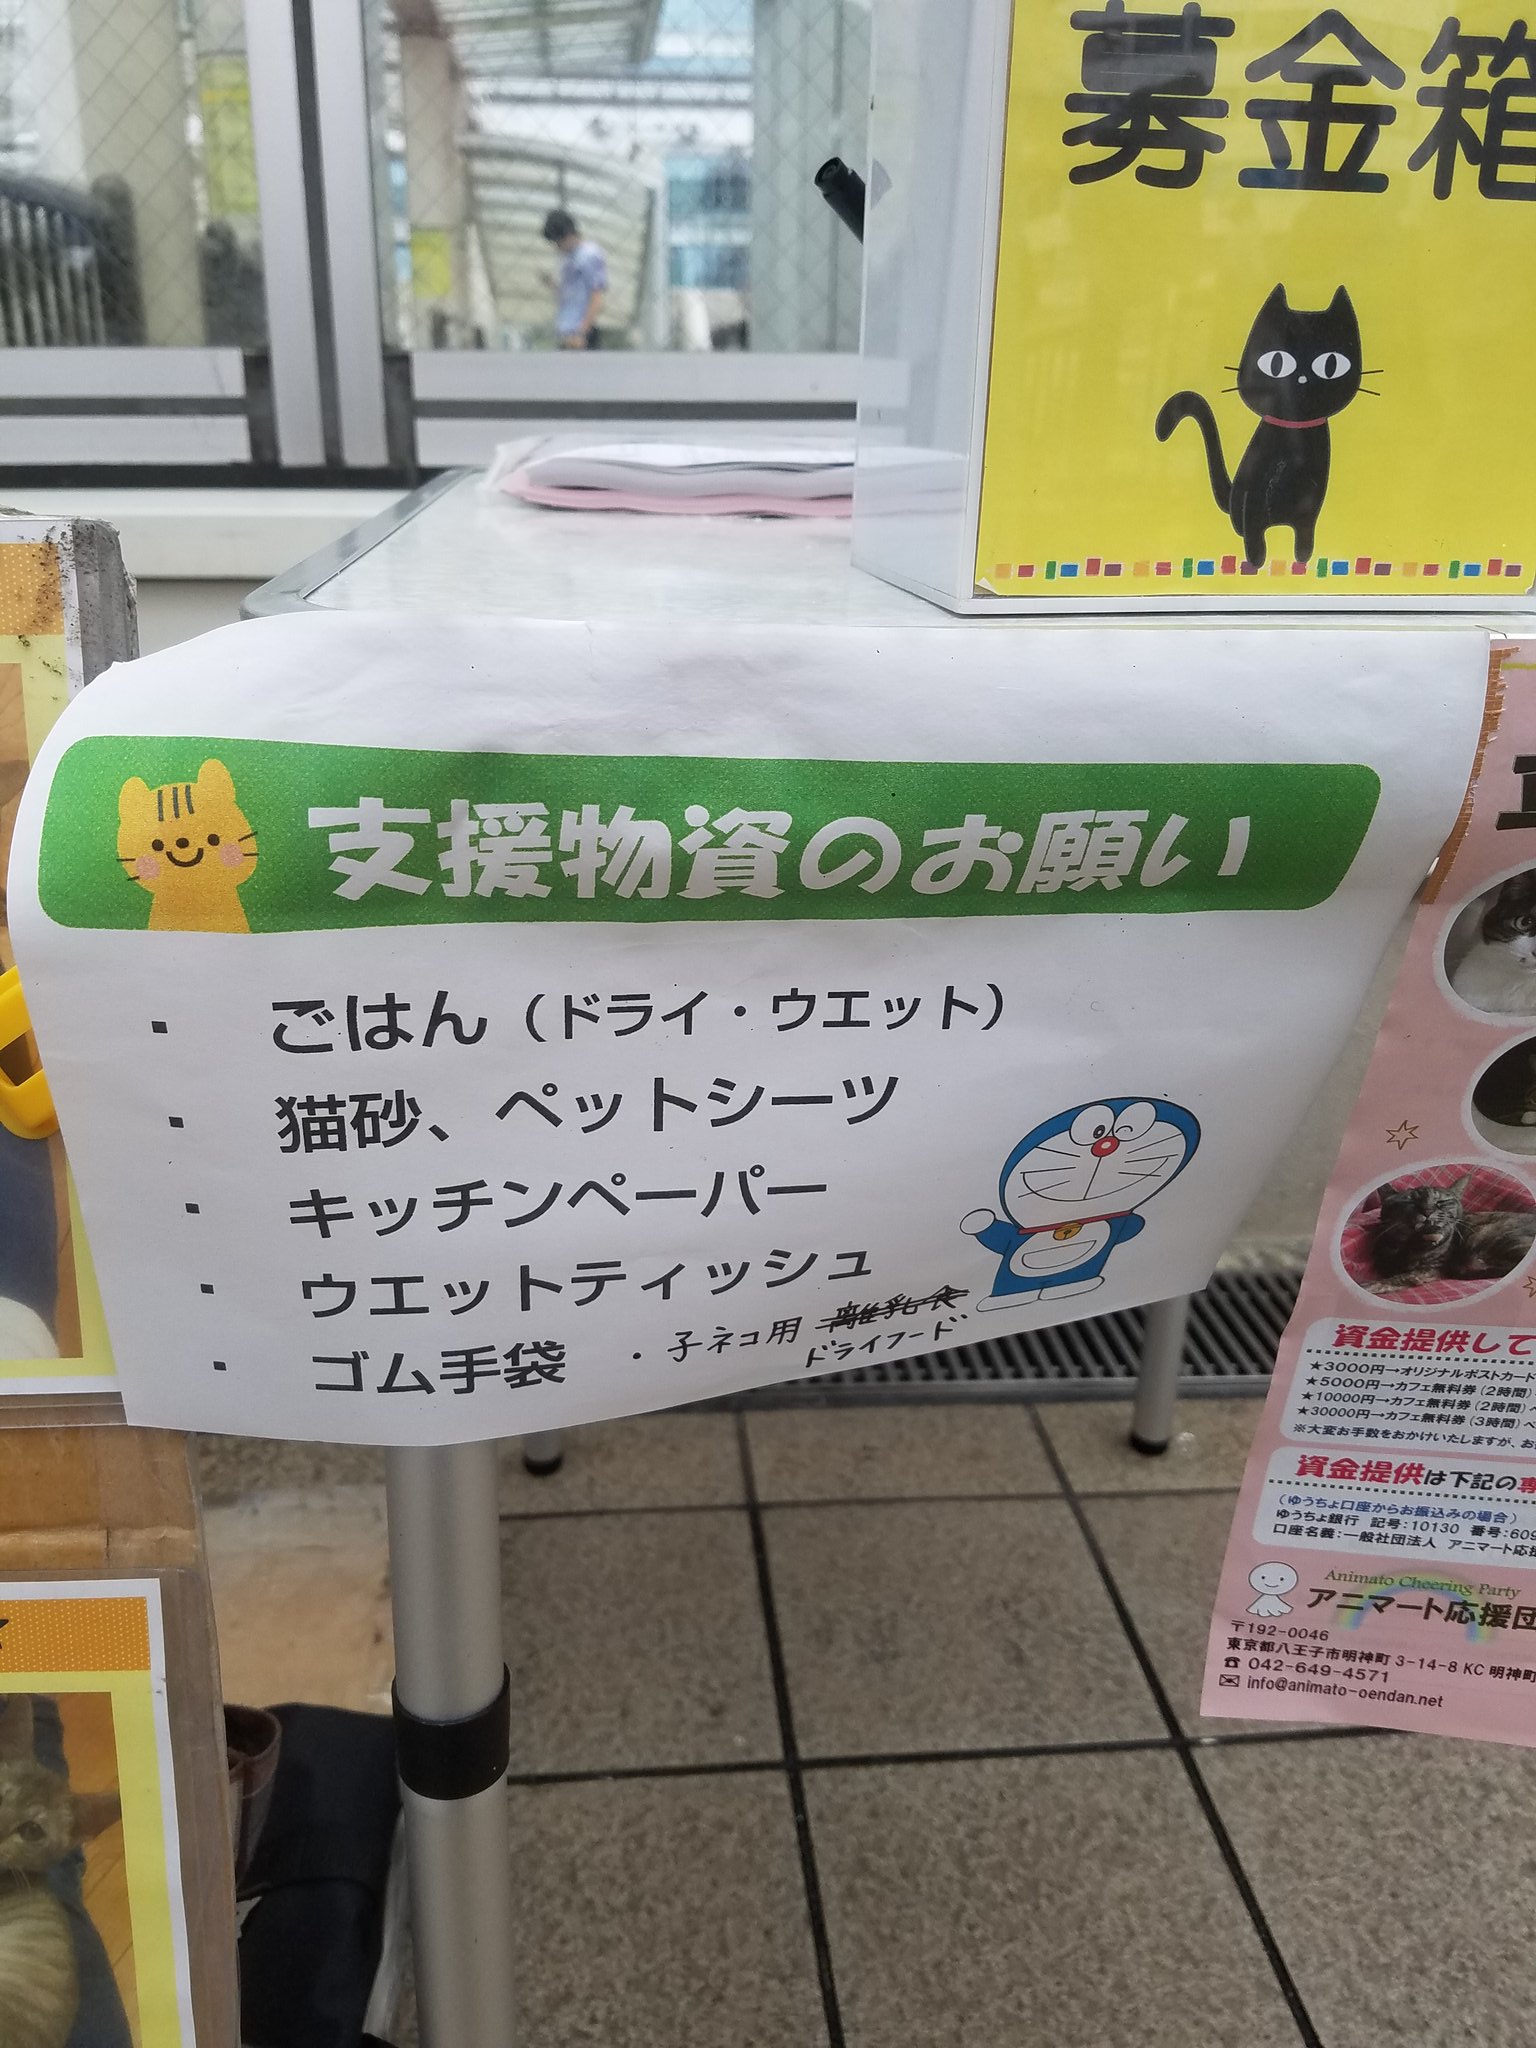 募金箱
支援物資のお願い
・ ごはん（ドライ・ウエット）
・ 猫砂、ペットシーツ
・ キッチンペーパー
・ ウエットティッシュ
・ ゴム手袋
・子ネコ用 離乳食
ドライフード
資金提供して
★3000円→オリジナルポストカード
★5000円→カフェ無料券（2時間）
★10000円→カフェ無料券（2時間）
★30000円→カフェ無料券（3時間）
※大変お手数をおかけいたしますが、お
資金提供は下記の専
（ゆうちょ口座からお振込みの場合）
ゆうちょ銀行 記号：10130 番号：609
口座名義：一般社団法人 アニマート応援
Animato Cheering Party
アニマート応援団
〒192-0046
東京都八王子市明神町 3-14-8 KC 明神町
☎ 042-649-4571
✉ info@animato-oendan.net